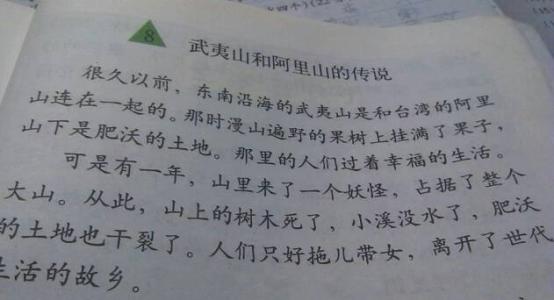 8
武夷山和阿里山的传说
很久以前，东南沿海的武夷山是和台湾的阿里
山连在一起的。那时漫山遍野的果树上挂满了果子，
山下是肥沃的土地。那里的人们过着幸福的生活。
可是有一年，山里来了一个妖怪，占据了整个
大山。从此，山上的树木死了，小溪没水了，肥沃
的土地也干裂了。人们只好拖儿带女，离开了世代
生活的故乡。